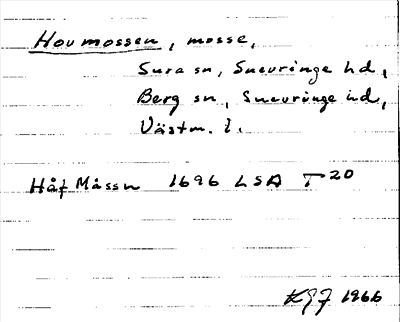 Hovmossen, mosse,
Sura sn, Snevringe hd,
Berg sn, Snevringe hd,
Västm. l.
Håf Måssn 1696 LSA T 20
KGF 1966